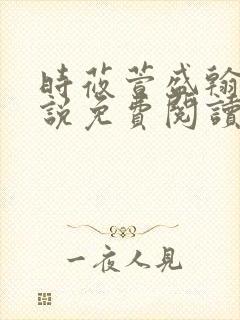 時莜萱盛翰
說免費閱讀
一夜人見